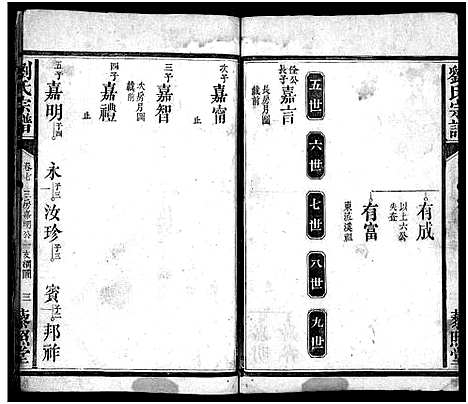 劉氏宗譜
有成
以上六公
失查
有富
東流溪祖
五世 六世 七世 八世 九世
佺公
長子 嘉言
長房月圖
載前
次子 嘉甯
三子 嘉智
次房月圖
載前
止
四子 嘉禮
止
五子 嘉明 子四 永 子三 汝珍 子三 賓 子二 邦祚
劉氏宗譜
卷七 三房嘉明公 支
三
藜照堂
藜照堂